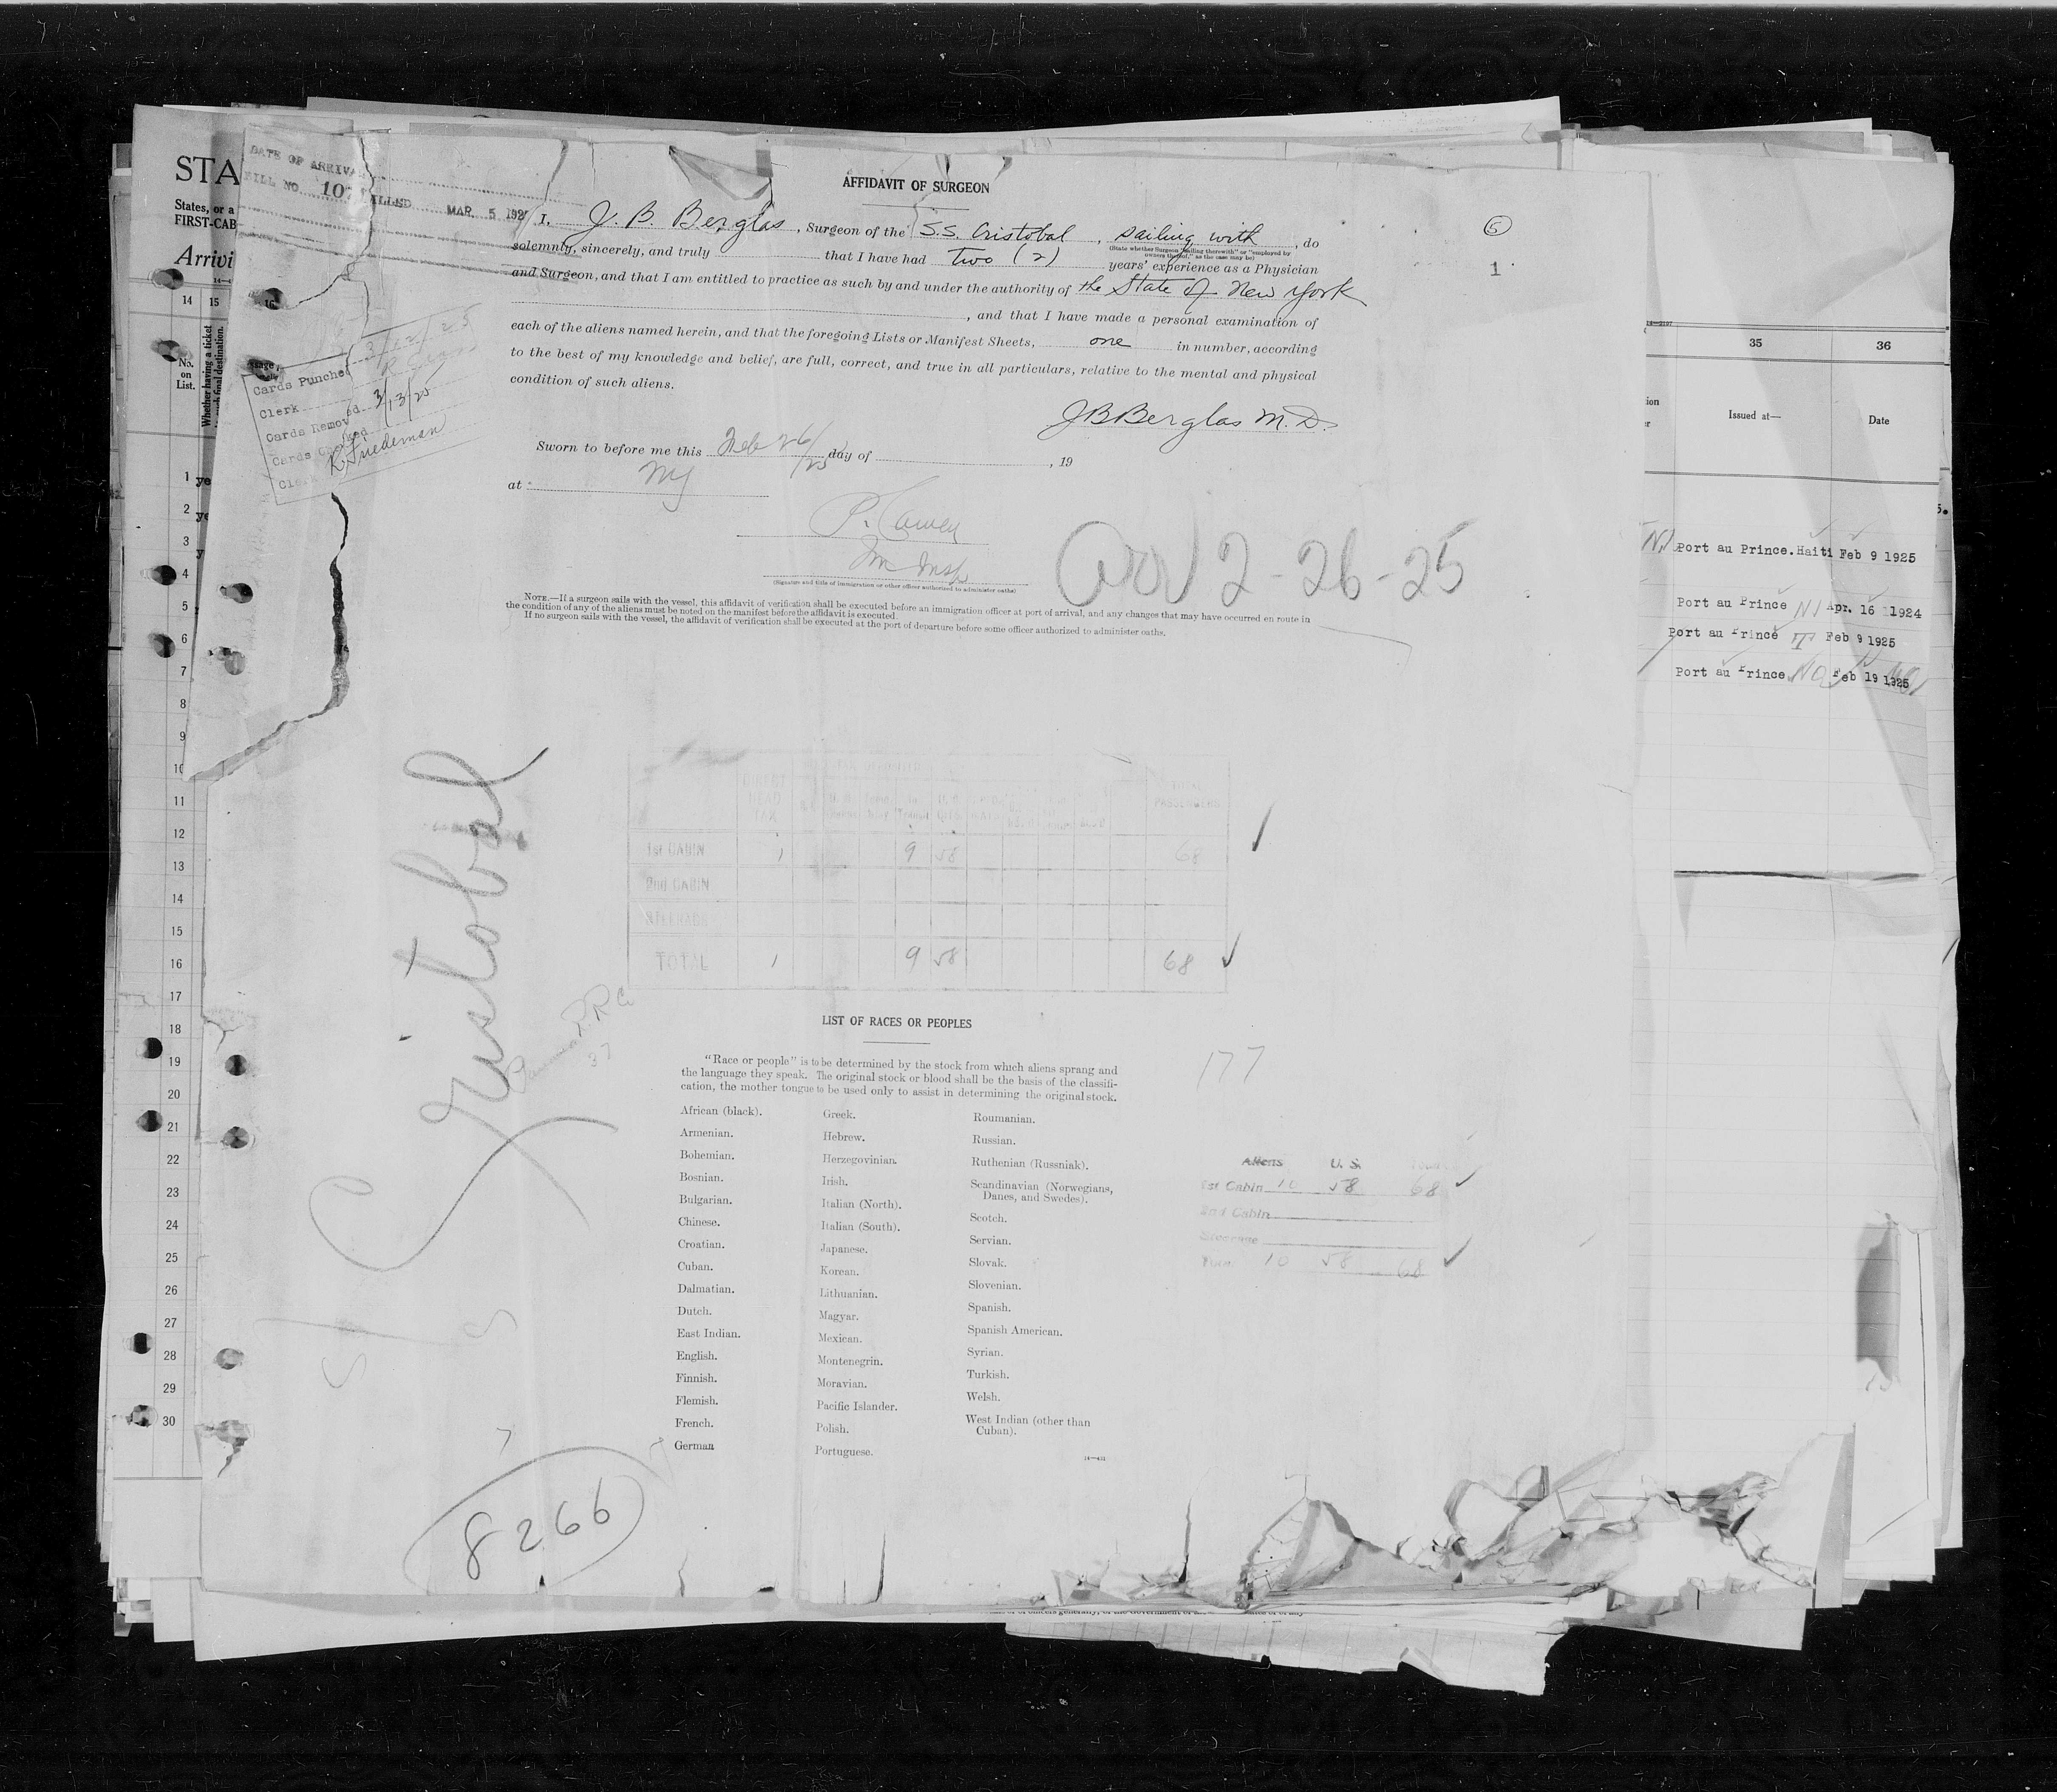 STA
States, or a
FIRST-CAB
Arrivi
DATE OF ARRIVAL
FILL NO.
MAR. 5 192
AFFIDAVIT OF SURGEON
5
1
I, J. B. Berglas, Surgeon of the S.S. Cristobal, sailing with, do
(State whether Surgeon "sailing therewith" or "employed by
owners thereof," as the case may be)
solemnly, sincerely, and truly that I have had two (2) years' experience as a Physician
and Surgeon, and that I am entitled to practice as such by and under the authority of the State of New York
, and that I have made a personal examination of
each of the aliens named herein, and that the foregoing Lists or Manifest Sheets, one in number, according
to the best of my knowledge and belief, are full, correct, and true in all particulars, relative to the mental and physical
condition of such aliens.
J B Berglas M.D.
Sworn to before me this Feb 26/25 day of , 19
at NY
(Signature and title of immigration or other officer authorized to administer oaths)
Arr 2-26-25
NOTE.—If a surgeon sails with the vessel, this affidavit of verification shall be executed before an immigration officer at port of arrival, and any changes that may have occurred en route in
the condition of any of the aliens must be noted on the manifest before the affidavit is executed.
If no surgeon sails with the vessel, the affidavit of verification shall be executed at the port of departure before some officer authorized to administer oaths.
Cards Punched 3/12/25
Clerk
Cards Removed 3/13/25
Cards
Clerk K Friedeman
14 15 16
No.
on
List.
Whether having a ticket
final destination.
1 ye
2 ye
3 y
4
5
6
7
8
9
10
11
12
13
14
15
16
17
18
19
20
21
22
23
24
25
26
27
28
29
30
Cristobal
Panama R R Co
37
8266
DIRECT HEAD TAX
TOTAL PASSENGERS
1st CABIN 1 9 58 68
2nd CABIN
STEERAGE
TOTAL 1 9 58 68
LIST OF RACES OR PEOPLES
"Race or people" is to be determined by the stock from which aliens sprang and
the language they speak. The original stock or blood shall be the basis of the classifi-
cation, the mother tongue to be used only to assist in determining the original stock.
African (black).
Armenian.
Bohemian.
Bosnian.
Bulgarian.
Chinese.
Croatian.
Cuban.
Dalmatian.
Dutch.
East Indian.
English.
Finnish.
Flemish.
French.
German
Greek.
Hebrew.
Herzegovinian.
Irish.
Italian (North).
Italian (South).
Japanese.
Korean.
Lithuanian.
Magyar.
Mexican.
Montenegrin.
Moravian.
Pacific Islander.
Polish.
Portuguese.
Roumanian.
Russian.
Ruthenian (Russniak).
Scandinavian (Norwegians,
Danes, and Swedes).
Scotch.
Servian.
Slovak.
Slovenian.
Spanish.
Spanish American.
Syrian.
Turkish.
Welsh.
West Indian (other than
Cuban).
177
Aliens U. S.
1st Cabin 10 58 68
2nd Cabin
Steerage
10 58 68
35 36
Issued at— Date
Port au Prince.Haiti Feb 9 1925
Port au Prince Apr. 16 1924
Port au Prince Feb 9 1925
Port au Prince Feb 19 1925